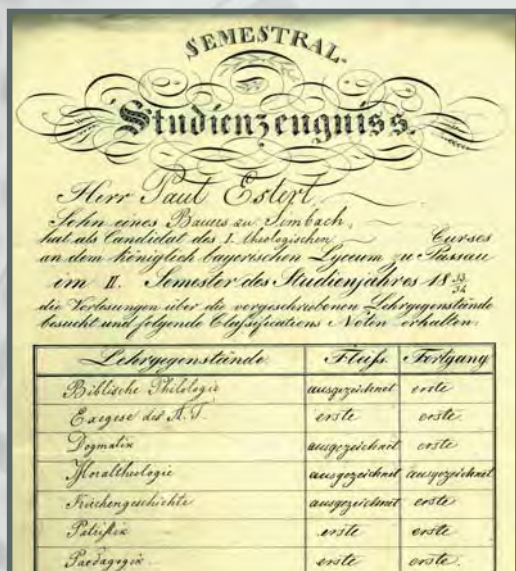 SEMESTRAL-
Studienzeugniss.
Herr Paul Esterl,
Sohn eines Bauers zu Simbach,
hat als Candidat des I. theologischen Curses
an dem königlich bayerischen Lyceum zu Passau
im II. Semester des Studienjahres 18 33/34
die Vorlesungen über die vorgeschriebenen Lehrgegenstände
besucht und folgende Classifications Noten erhalten:
Lehrgegenstände. Fleiß. Fortgang
Biblische Philologie ausgezeichnet erste
Exegese des A. T. erste erste.
Dogmatik ausgezeichnet erste
Moraltheologie ausgezeichnet ausgezeichnet
Kirchengeschichte ausgezeichnet erste
Patristik erste erste.
Paedagogik erste erste.